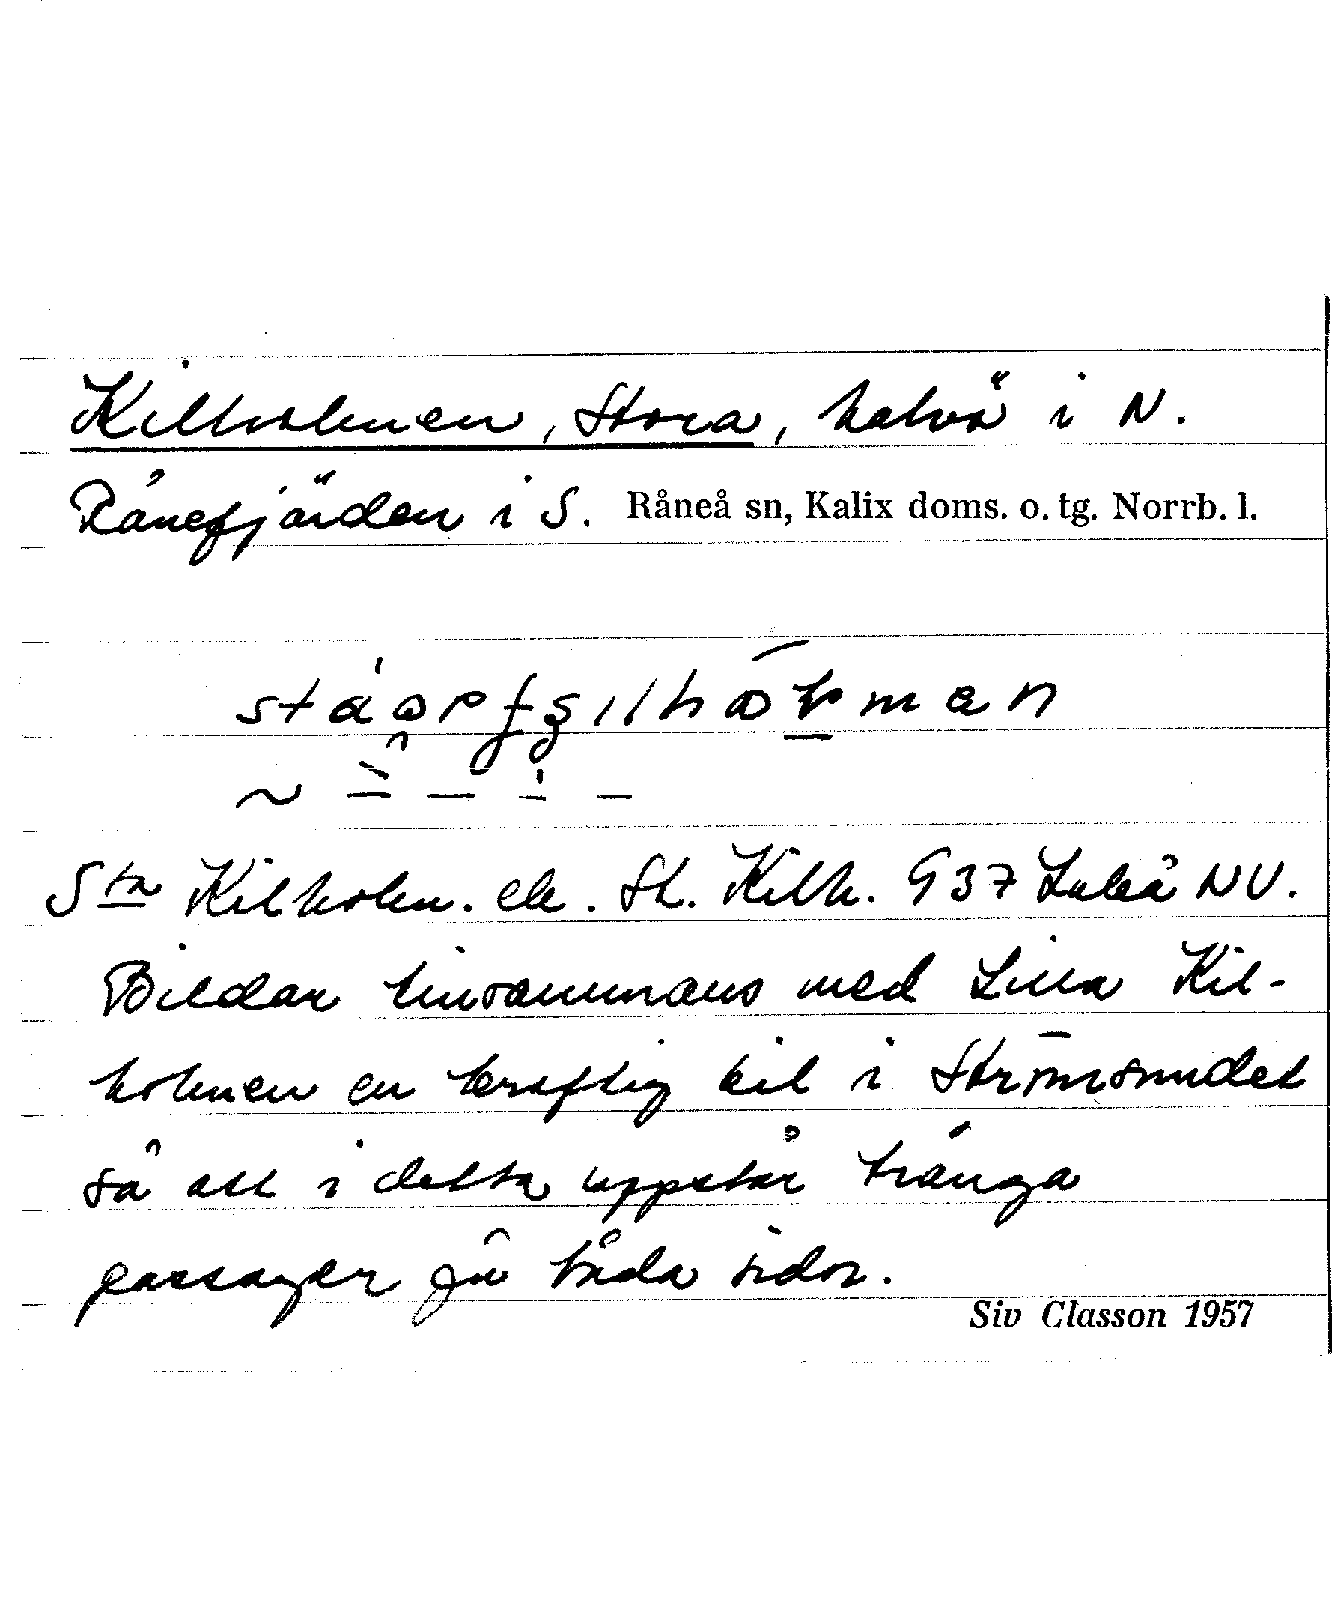 Kilholmen, Stora, halvö i N.
Rånefjärden i S. Råneå sn, Kalix doms. o. tg. Norrb. l.
Sta Kilholm. ek. St. Kilh. G37 Luleå NV.
Bildar tinsammans med Lilla Kil-
holmen en kraftig kil i Strömsundet
så att i detta uppstår trånga
passager på båda sidor.
Siv Classon 1957